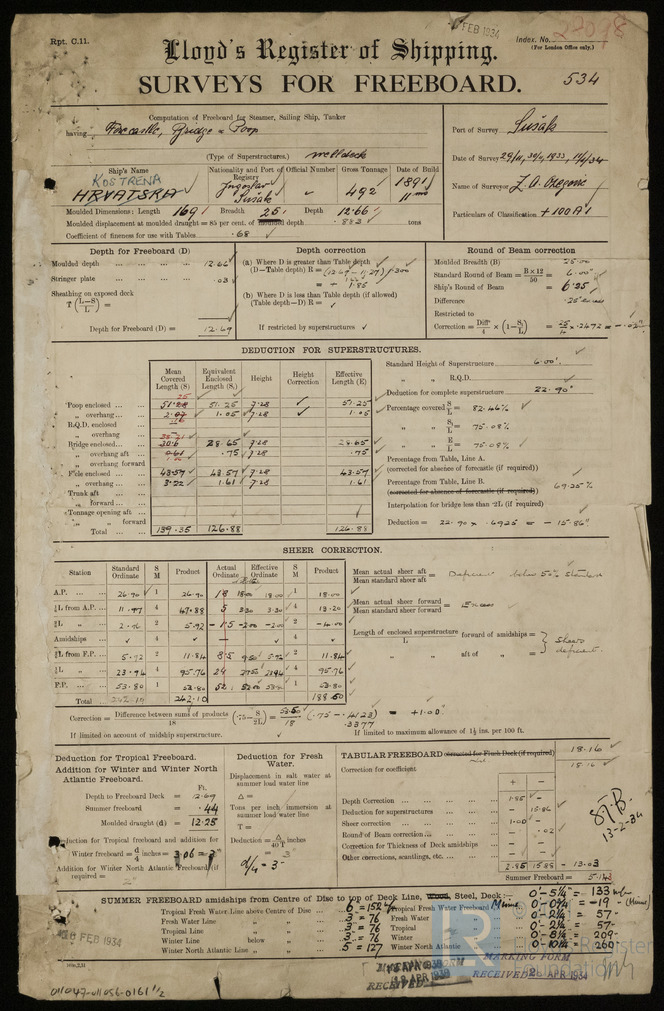 Rpt. C.11.
FEB 1934
Index. No. 27098
(For London Office only.)
Lloyd's Register of Shipping.
SURVEYS FOR FREEBOARD.
534
Computation of Freeboard for Steamer, Sailing Ship, Tanker
having Forecastle, Bridge & Poop
(Type of Superstructures.) welldeck
Port of Survey Sušak
Date of Survey
Name of Surveyor
Particulars of Classification +100A1
Ship's Name
Nationality and Port of Registry
Official Number
Gross Tonnage
Date of Build
KOSTRENA
HRVATSKA
Jugoslav
Sušak
492
1891
11 mo
Moulded Dimensions: Length 169' Breadth 25' Depth 12.66'
Moulded displacement at moulded draught = 85 per cent. of moulded depth 882 tons
Coefficient of fineness for use with Tables .68
Depth for Freeboard (D)
Moulded depth ... 12.66
Stringer plate ... .03
Sheathing on exposed deck
T (L-S/L) =
Depth for Freeboard (D) = 12.69
Depth correction
(a) Where D is greater than Table depth
(D—Table depth) R = (12.69 - 11.27) 1.300
= + 1.85
(b) Where D is less than Table depth (if allowed)
(Table depth—D) R =
If restricted by superstructures
Round of Beam correction
Moulded Breadth (B) 25.00
Standard Round of Beam = B×12/50 = 6.00"
Ship's Round of Beam = 6.25
Difference .25
Restricted to
Correction = Diff/4 × (1-S₁/L) = .25/4 × .2472 = -.02"
DEDUCTION FOR SUPERSTRUCTURES.
Mean Covered Length (S)
Equivalent Enclosed Length (S₁)
Height
Height Correction
Effective Length (E)
Poop enclosed ... 51.25 51.25 7.28 51.25
„ overhang ... 2.07 1.05 7.28 1.05
R.Q.D. enclosed
„ overhang
Bridge enclosed ... 28.65 7.28 28.65
„ overhang aft ... .75 7.28 .75
„ overhang forward
F'cle enclosed ... 43.57 43.57 7.28 43.57
„ overhang ... 3.22 1.61 7.28 1.61
Trunk aft ...
„ forward ...
Tonnage opening aft ...
„ „ forward
Total ... 139.35 126.88 126.88
Standard Height of Superstructure ... 6.00'
„ „ R.Q.D. ...
Deduction for complete superstructure ... 22.90"
Percentage covered S/L = 82.46%
„ „ S₁/L = 75.08%
„ „ E/L = 75.08%
Percentage from Table, Line A.
(corrected for absence of forecastle (if required))
Percentage from Table, Line B. 69.25%
(corrected for absence of forecastle (if required))
Interpolation for bridge less than ·2L (if required)
Deduction = 22.90 × .6925 = - 15.86"
SHEER CORRECTION.
Station
Standard Ordinate
S M
Product
Actual Ordinate
Effective Ordinate
S M
Product
A.P. ... 26.90 1 26.90 18 18.00 1 18.00
⅙L from A.P. ... 11.97 4 47.88 4 13.20
⅓L „ ... 2.96 2 5.92 -2.00 2 -4.00
Amidships ... 4 4
⅓L from F.P. ... 5.92 2 11.84 5.92 2 11.84
⅙L „ ... 23.94 4 95.76 24 4 95.76
F.P. ... 53.80 1 53.80 52 1 53.80
Total ... 242.10 242.10 188.60
Mean actual sheer aft / Mean standard sheer aft = Deficient below 50% standard
Mean actual sheer forward / Mean standard sheer forward = Excess
Length of enclosed superstructure / L forward of amidships =
„ „ aft of „ =
Sheer deficient.
Correction = Difference between sums of products / 18 (·75 - S/2L) = 53.50/18 (.75 - .4123) = +1.00"
.3377
If limited on account of midship superstructure.
If limited to maximum allowance of 1½ ins. per 100 ft.
Deduction for Tropical Freeboard.
Addition for Winter and Winter North Atlantic Freeboard.
Ft.
Depth to Freeboard Deck = 12.69
Summer freeboard = .44
Moulded draught (d) = 12.25
Deduction for Tropical freeboard and addition for
Winter freeboard = d/4 inches = 3.06 = 3"
Addition for Winter North Atlantic Freeboard (if required) =
Deduction for Fresh Water.
Displacement in salt water at summer load water line
Δ =
Tons per inch immersion at summer load water line
T =
Deduction = Δ/40T inches
= 3
d/4 = 3-
TABULAR FREEBOARD corrected for Flush Deck (if required) 18.16
Correction for coefficient 18.16
+ -
Depth Correction ... 1.85 -
Deduction for superstructures ... - 15.86
Sheer correction ... 1.00 -
Round of Beam correction ... - .02
Correction for Thickness of Deck amidships - -
Other corrections, scantlings, etc. ... - -
2.85 15.88 - 13.03
Summer Freeboard = 5.13
13-2-34
SUMMER FREEBOARD amidships from Centre of Disc to top of Deck Line, Wood, Steel, Deck:— 0'-5¼" = 133 m/m
Tropical Fresh Water Line above Centre of Disc ... 6 = 152
Fresh Water Line „ „ ... 3 = 76
Tropical Line „ „ ... 3 = 76
Winter Line below „ ... 3 = 76
Winter North Atlantic Line „ „ ... 5 = 127
Tropical Fresh Water Freeboard Minus 0'-0¾" = -19 - (Minus)
Fresh Water „ 0'-2¼" = 57 -
Tropical „ 0'-2¼" = 57 -
Winter „ 0'-8¼" = 209 -
Winter North Atlantic „ 0'-10¼" = 260 -
FEB 1934
10m,2,31
RECEIVED
MARKING FORM
RECEIVED 2 APR 1934
LR
Lloyd's Register
Foundation
011047-011056-0161 1/2